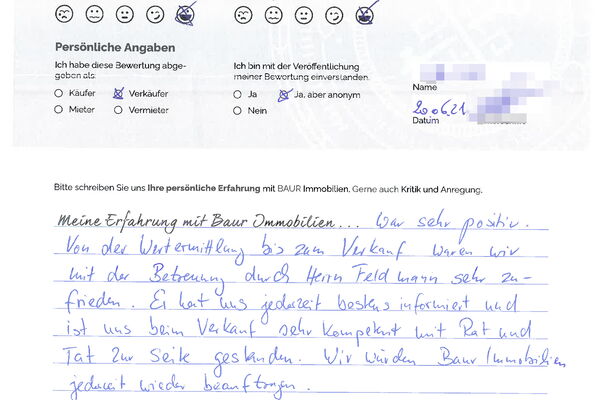 Persönliche Angaben
Ich habe diese Bewertung abge-
geben als:
Käufer Verkäufer
Mieter Vermieter
Ich bin mit der Veröffentlichung
meiner Bewertung einverstanden.
Ja Ja, aber anonym
Nein
Name
20.06.21
Datum
Bitte schreiben Sie uns Ihre persönliche Erfahrung mit BAUR Immobilien. Gerne auch Kritik und Anregung.
Meine Erfahrung mit Baur Immobilien... war sehr positiv.
Von der Wertermittlung bis zum Verkauf waren wir
mit der Betreuung durch Herrn Feldmann sehr zu-
frieden. Er hat uns jederzeit bestens informiert und
ist uns beim Verkauf sehr kompetent mit Rat und
Tat zur Seite gestanden. Wir würden Baur Immobilien
jederzeit wieder beauftragen.